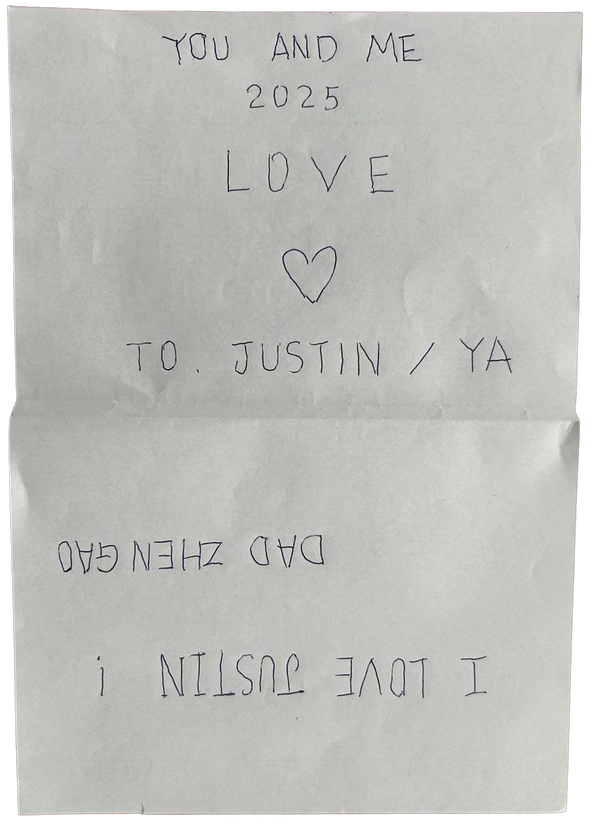 YOU AND ME
2025
LOVE
TO. JUSTIN / YA
I LOVE JUSTIN !
DAD ZHEN GAO